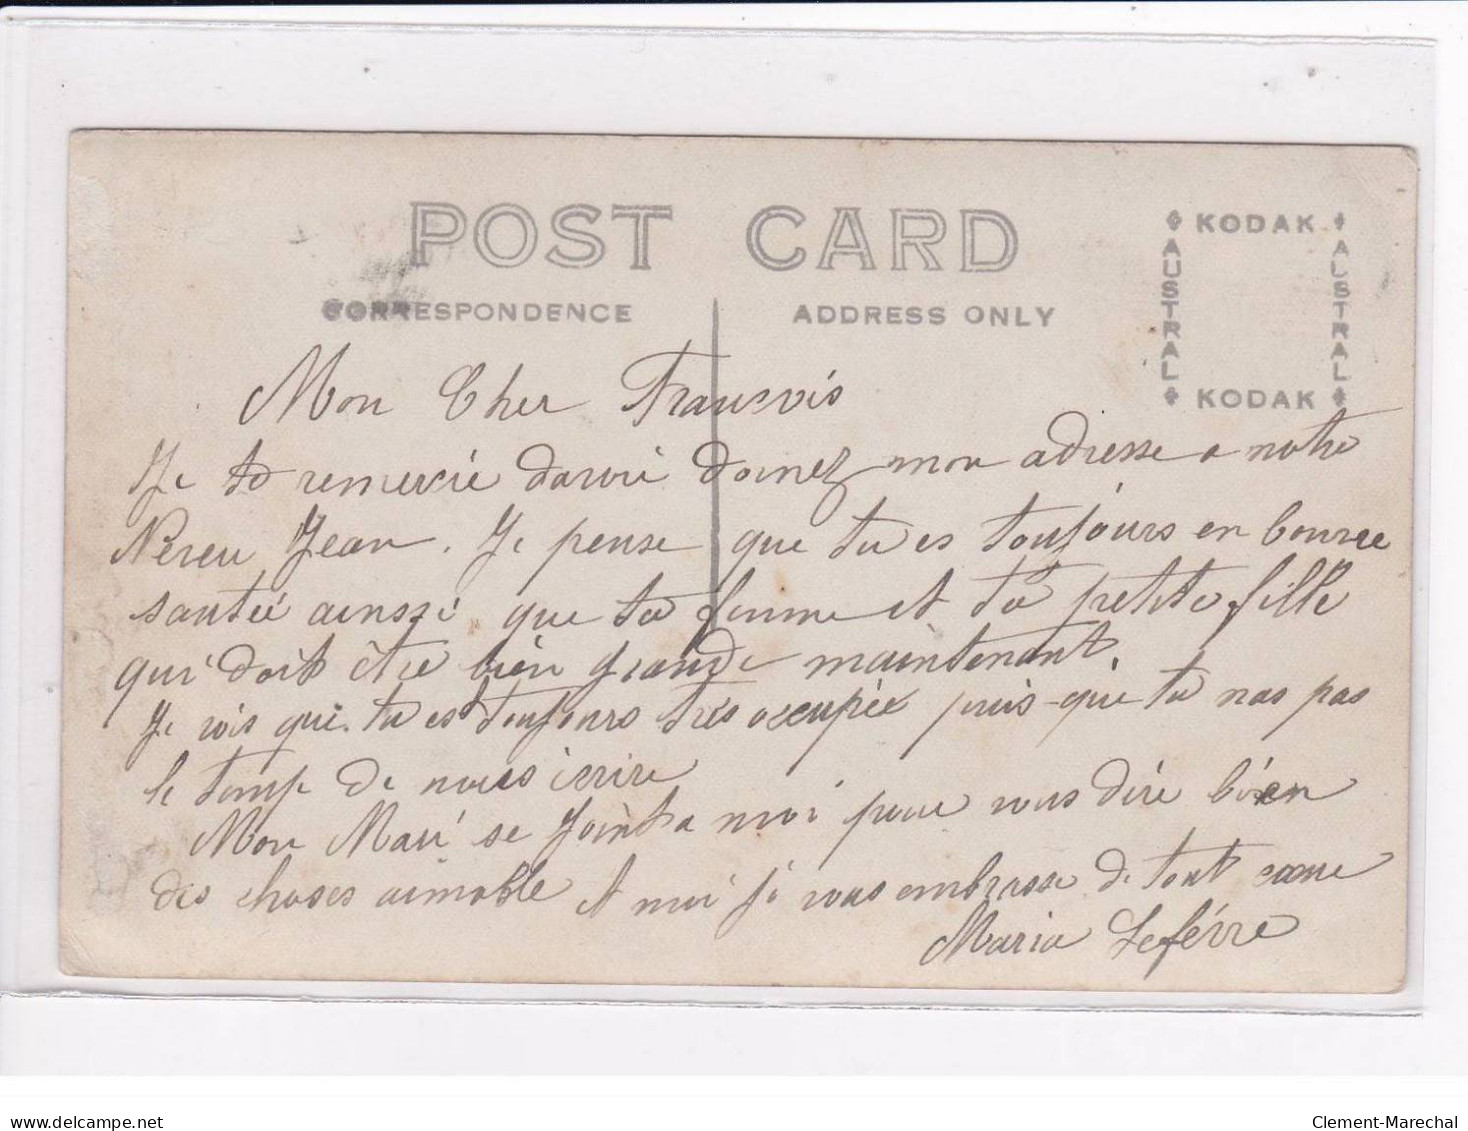 POST CARD
CORRESPONDENCE
ADDRESS ONLY
KODAK
AUSTRAL
AUSTRAL
KODAK
Mon Cher Francois
Je te remercie davoir donnez mon adresse a notre
Neveu Jean. Je pense que tu es toujours en bonne
santée ainssi que ta femme et ta petite fille
qui doit être bien grande maintenant.
Je vois que tu est toujours très occupée puis-que tu nas pas
le temp de nous ecrire
Mon Mari se joint a moi pour vous dire bien
des choses aimable et moi je vous embrasse de tout coeur
Maria Lefévre
delcampe.net
Clement-Marechal